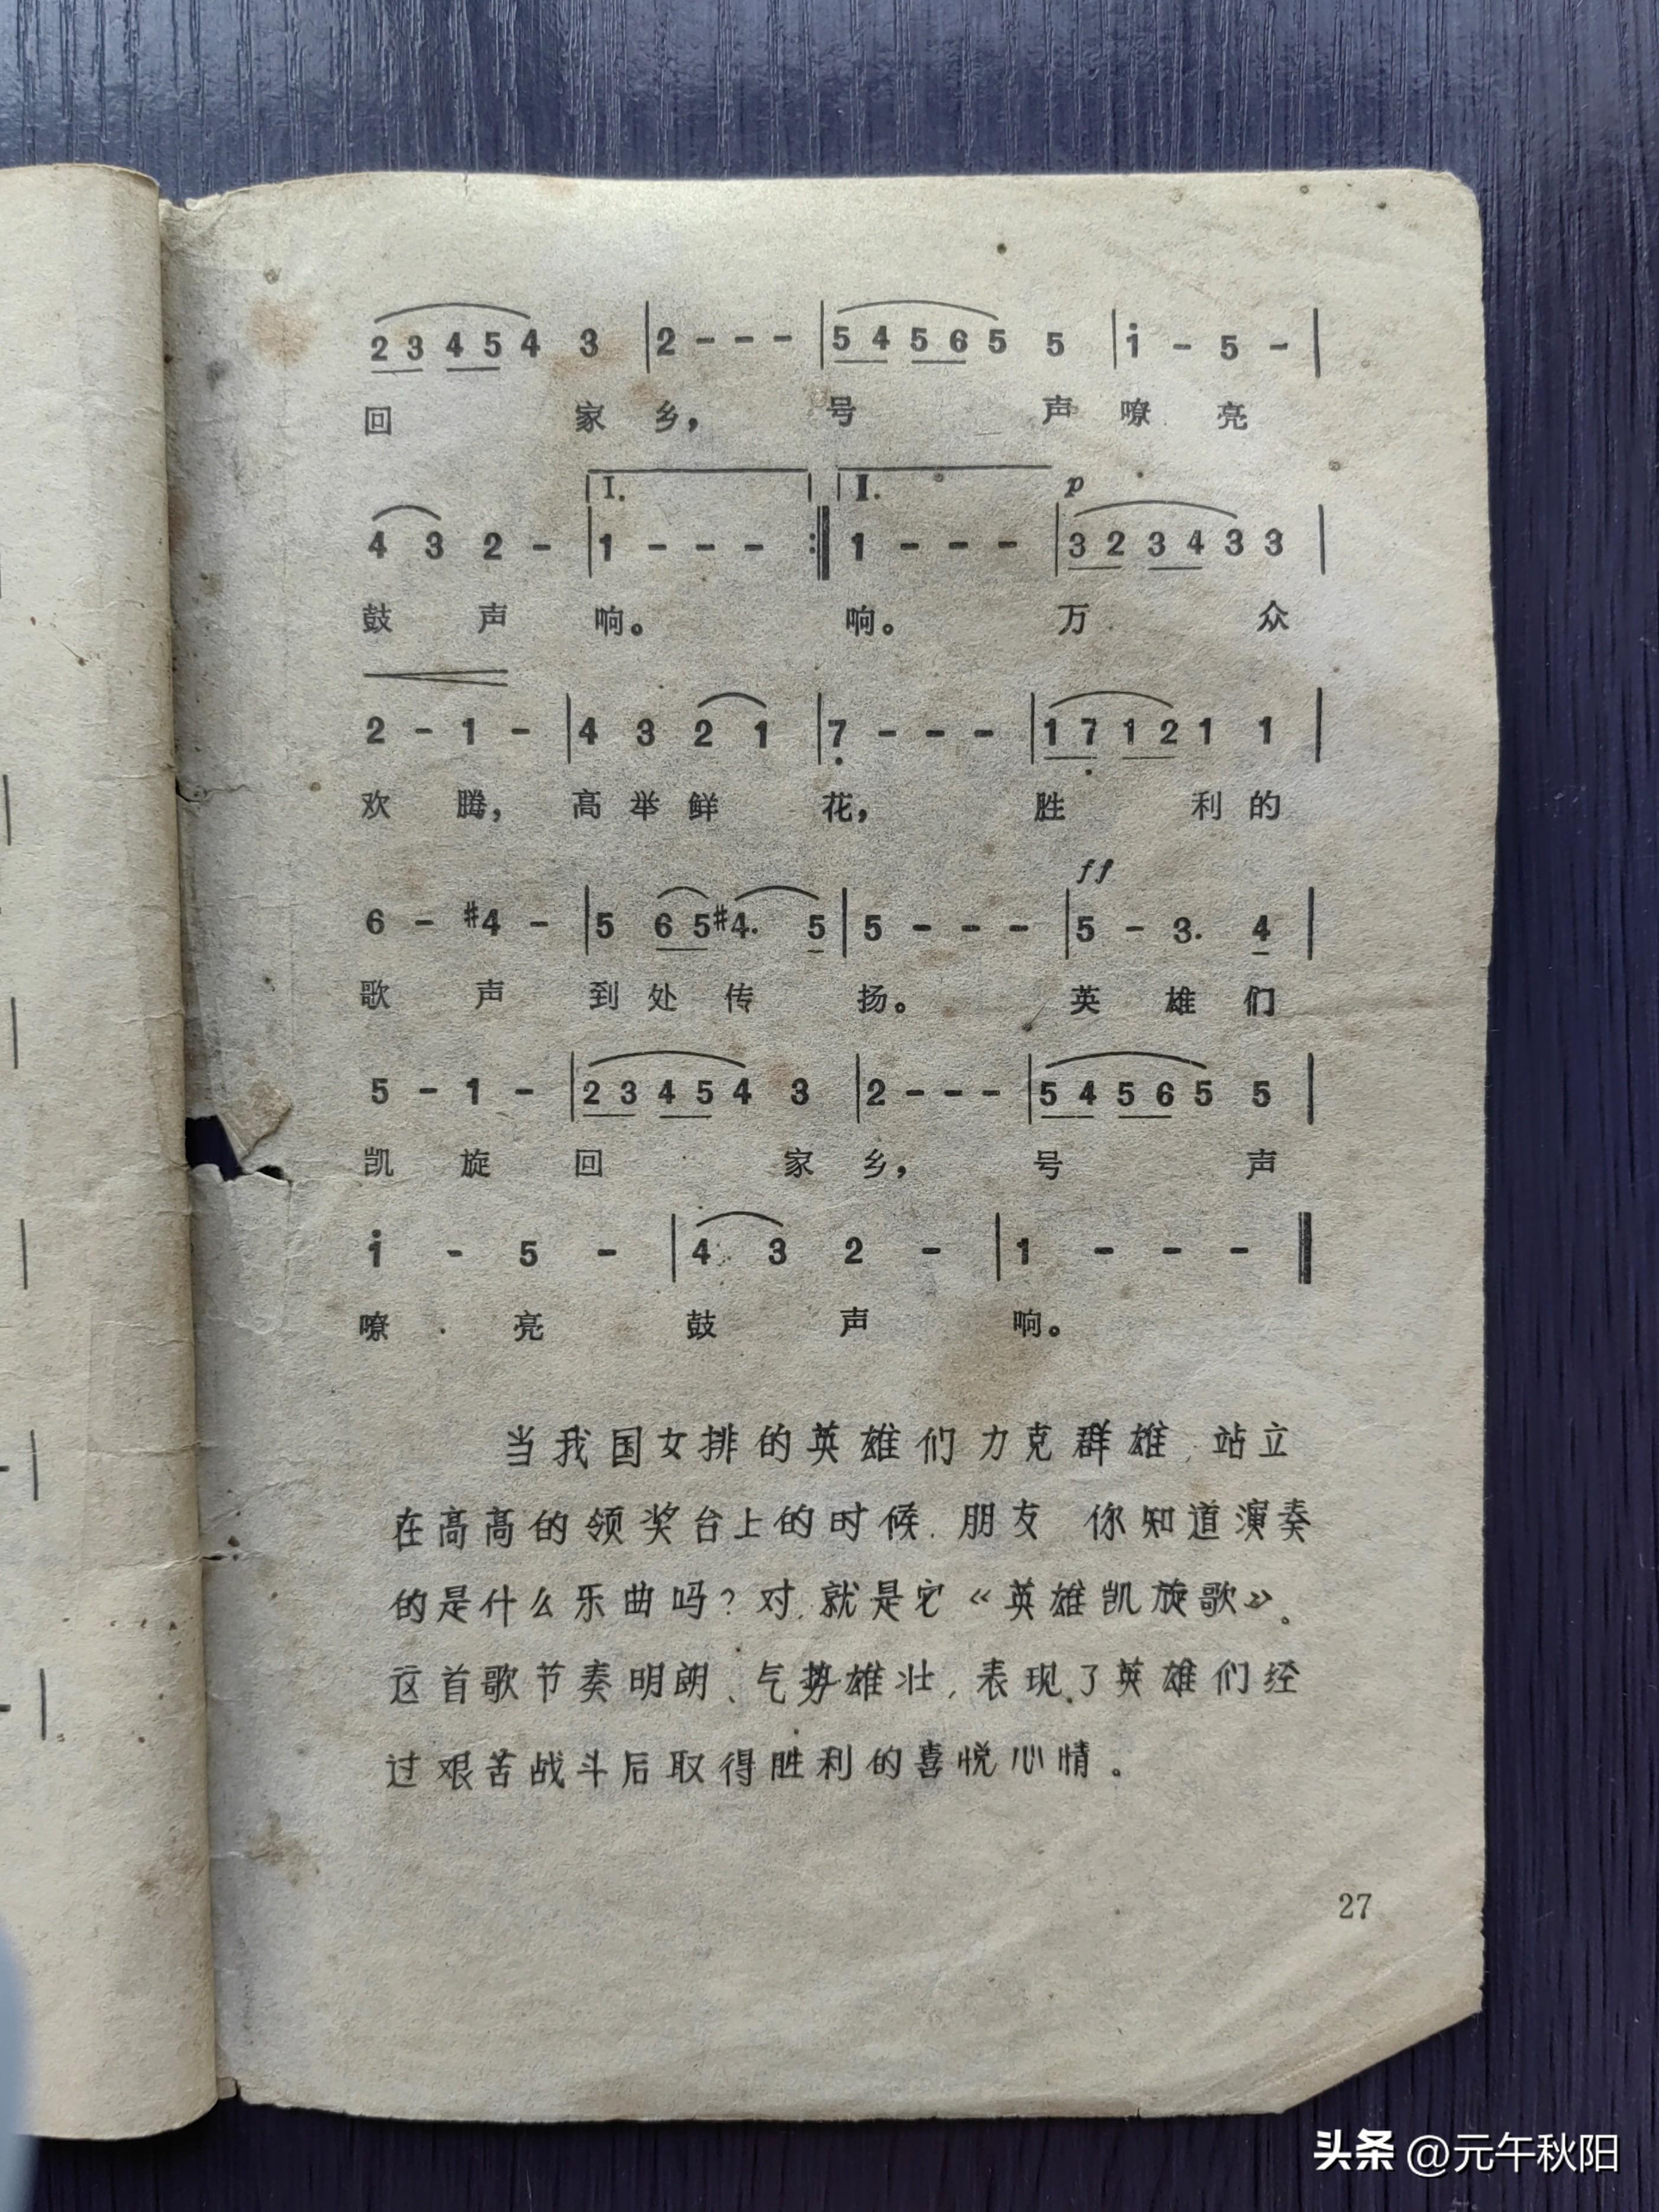 2 3 4 5 4 3 | 2 - - - | 5 4 5 6 5 5 | i - 5 - |
回 家 乡， 号 声 嘹 亮
I. I. p
4 3 2 - | 1 - - - :‖ 1 - - - | 3 2 3 4 3 3 |
鼓 声 响。 响。 万 众
2 - 1 - | 4 3 2 1 | 7̣ - - - | 1 7̣ 1 2 1 1 |
欢 腾， 高 举 鲜 花， 胜 利 的
ff
6 - #4 - | 5 6 5 #4. 5 | 5 - - - | 5 - 3. 4 |
歌 声 到 处 传 扬。 英 雄 们
5 - 1 - | 2 3 4 5 4 3 | 2 - - - | 5 4 5 6 5 5 |
凯 旋 回 家 乡， 号 声
i - 5 - | 4 3 2 - | 1 - - - ‖
嘹 亮 鼓 声 响。
当我国女排的英雄们力克群雄，站立
在高高的领奖台上的时候，朋友 你知道演奏
的是什么乐曲吗？对，就是它《英雄凯旋歌》。
这首歌节奏明朗、气势雄壮，表现了英雄们经
过艰苦战斗后取得胜利的喜悦心情。
27
头条 @元午秋阳